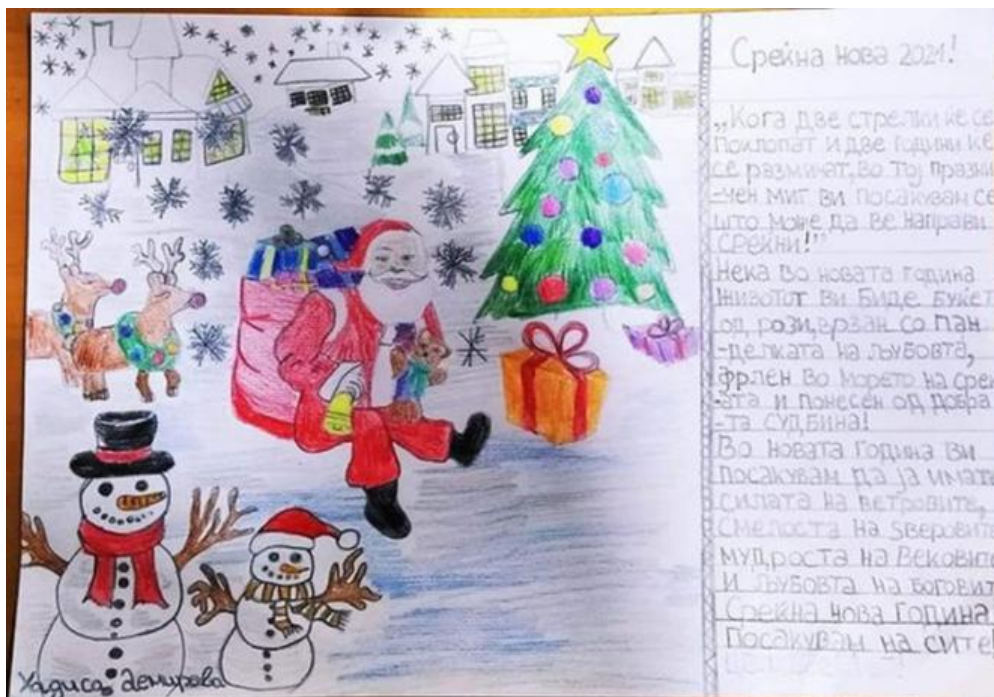 Среќна нова 2021!
„Кога две стрелки ќе се
поклопат и две години ќе
се разминат, во тој празни
-чен миг ви посакувам се
што може да ве направи
среќни!"
Нека во новата година
животот ви биде букет
од рози, врзан со пан
-делката на љубовта,
фрлен во морето на среќ
-ата и понесен од добра
-та судбина!
Во новата година ви
посакувам да ја имате
силата на ветровите,
смелоста на ѕверовите
мудроста на вековите
и љубовта на боговите
Среќна нова година
посакувам на сите!
Хадиса Демирова